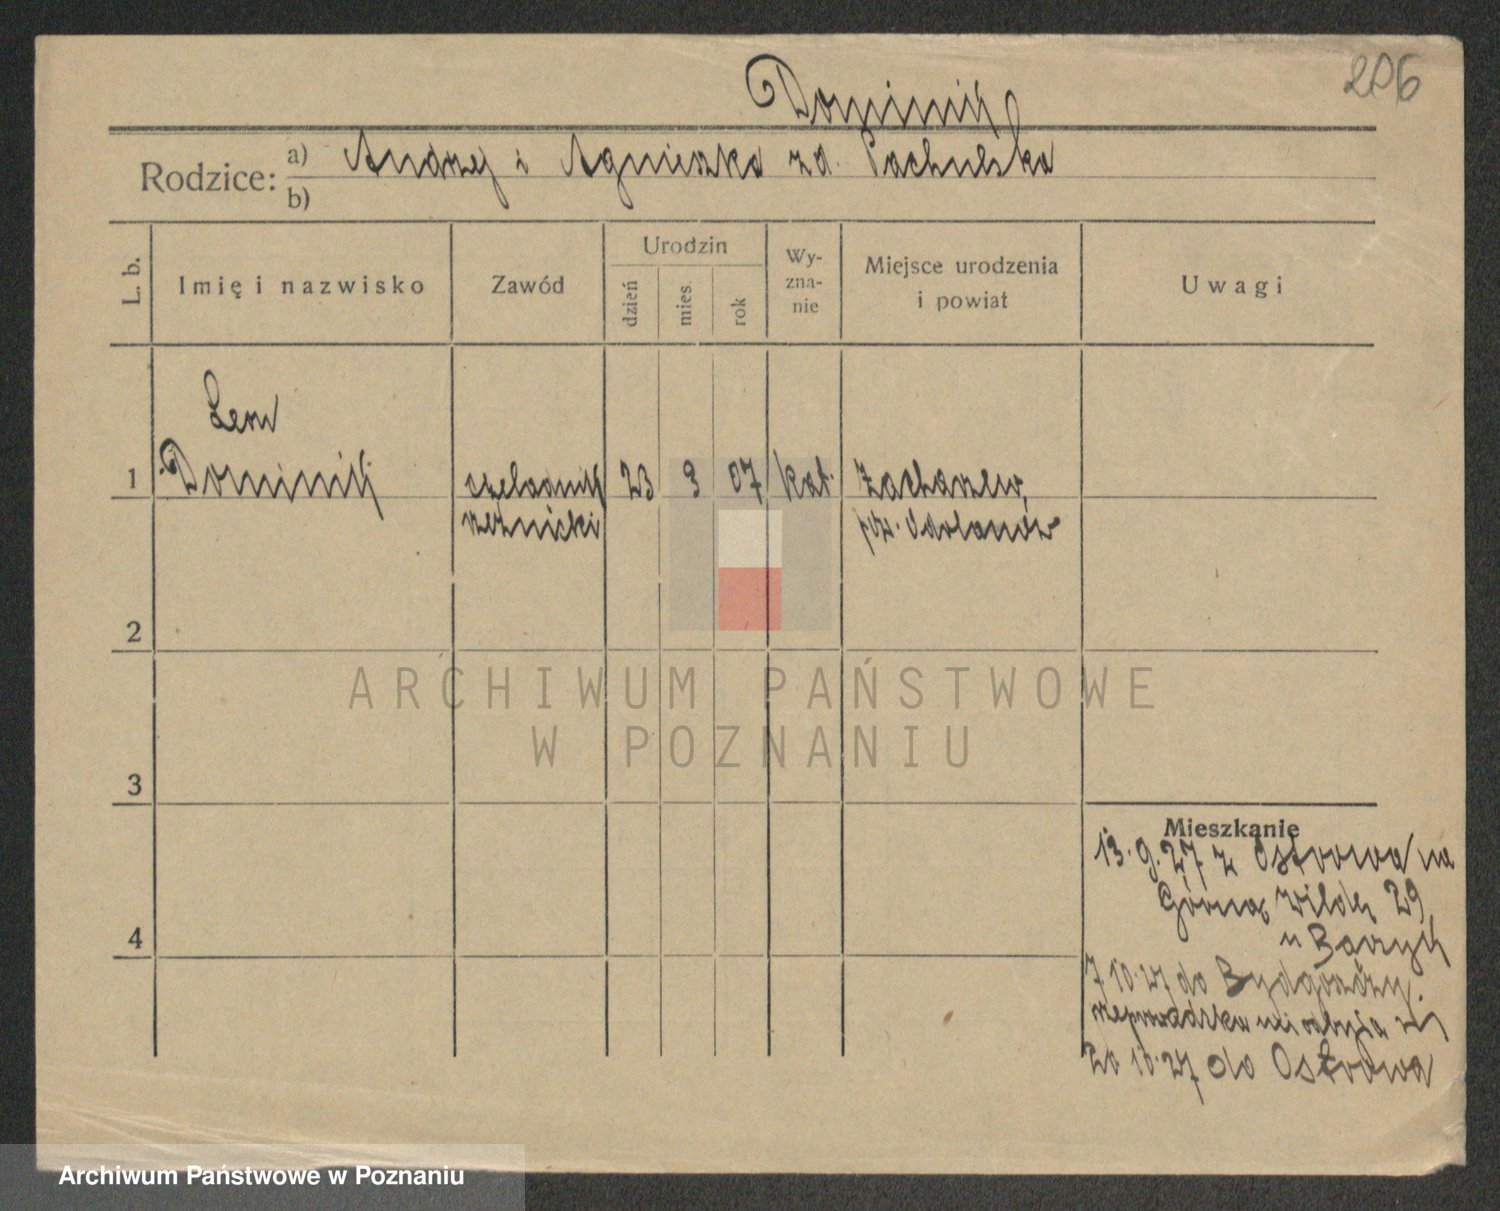 206
Dominik
Rodzice:
a) Andrzej i Agnieszka zd. Pachulska
b)
L. b.
Imię i nazwisko
Zawód
Urodzin
dzień
mies.
rok
Wy-
zna-
nie
Miejsce urodzenia
i powiat
Uwagi
Leon
1 Dominik czeladnik 23 3 07 kat. Zacharzew,
rzeźnicki pow. Odolanów
2
3
4
Mieszkanie
13.9.27 z Ostrowa na
Górną Wildę 29
u Barzyk
7.10.27 do Bydgoszczy.
20 10.27 do Ostrowa
ARCHIWUM PAŃSTWOWE
W POZNANIU
Archiwum Państwowe w Poznaniu